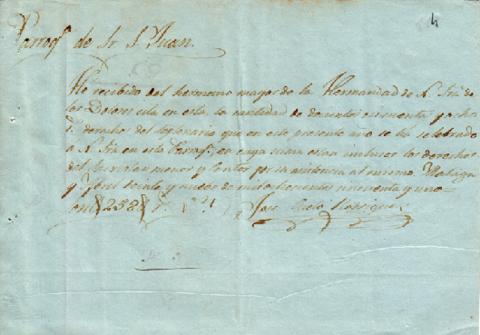 4
Parroq.ª de Sr. S. Juan.
He recibido del hermano mayor de la Hermandad de N. Sra. de
los Dolores sita en esta, la cantidad de doscientos cincuenta y ocho
r. derechos del septenario que en este presente año se ha celebrado
a N. Sra. en esta Parroq.ª, en cuya suma estan inclusos los derechos
del Sacristan menor y Cantor por la asistencia al mismo. Malaga
y Abril veinte y nueve de mil ochocientos cincuenta y uno
son 258 r.
José Rodriguez